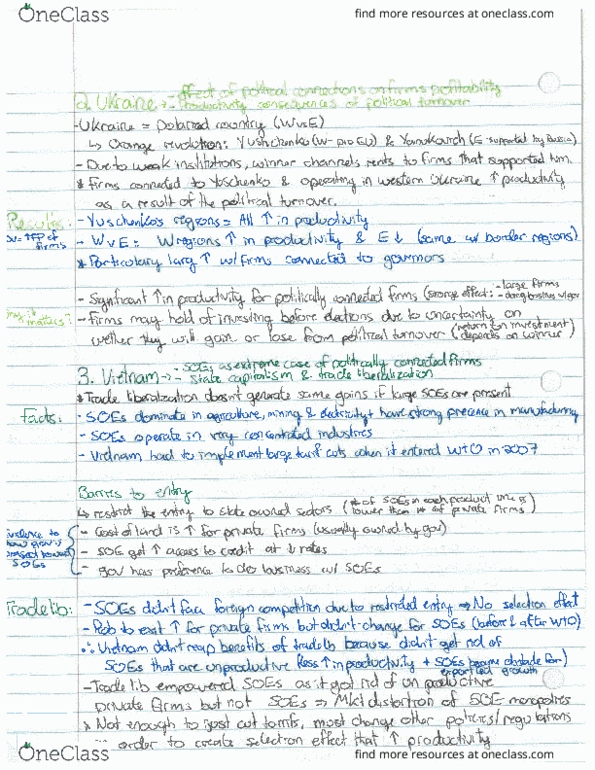 OneClass
find more resources at oneclass.com
2. Ukraine :- Effect of political connections on firms profitability
- Productivity consequences of political turnover
- Ukraine = Polarized country (WvsE)
↳ Orange revolution: Yushchenko (W- pro EU) & Yanokovich (E-supported by Russia)
- Due to weak institutions, winner channels rents to firms that supported him.
* Firms connected to Yoschenko & operating in western Ukraine ↑ productivity
as a result of the political turnover.
Results: - Yuschenko's regions = All ↑ in productivity
DV = TFP of firms
- WvE: W regions ↑ in productivity & E↓ (same w/ border regions)
* Particularly larg ↑ w/ firms connected to governors
- Significant ↑ in productivity for politically connected firms (stronge effect: - large firms
- doing business w/gov
Why it matters?
- Firms may hold of investing before elections due to uncertainty on
wether they will gain or lose from political turnover (return on investment depends on winner)
3. Vietnam :- SOEs as extreme case of politically connected firms
- state capitalism & trade liberalization
* Trade liberalization doesn't generate same gains if large SOEs are present
Facts: - SOEs dominate in agriculture, mining & electricity + have strong presence in manufacturing
- SOEs operate in very concentrated industries
- Vietnam had to implement large tarif cuts when it entered WTO in 2007
Barries to entry
↳ restrict the entry to state owned sectors (# of SOEs in each product line is lower than # of private firms)
evidence to how gov is biased toward SOEs
- Cost of land is ↑ for private firms (usually owned by gov)
- SOE get ↑ access to credit at ↓ rates
- gov has preference to do business w/ SOEs
Trade lib: - SOEs didn't face foreign competition due to restricted entry ⇒ No selection effect
- Prob to exit ↑ for private firms but didn't change for SOEs (before & after WTO)
∴ Vietnam didn't reap benefits of trade lib because didn't get rid of
SOEs that are unproductive (less ↑ in productivity + SOEs became obstacle for)
export led growth
- Trade lib empowered SOEs as it got rid of unproductive
private firms but not SOEs ⇒ Mkt distortion of SOE monopolies
* Not enough to just cut tarrifs, most change other policies/regulations
in order to create selection effect that ↑ productivity
OneClass
find more resources at oneclass.com